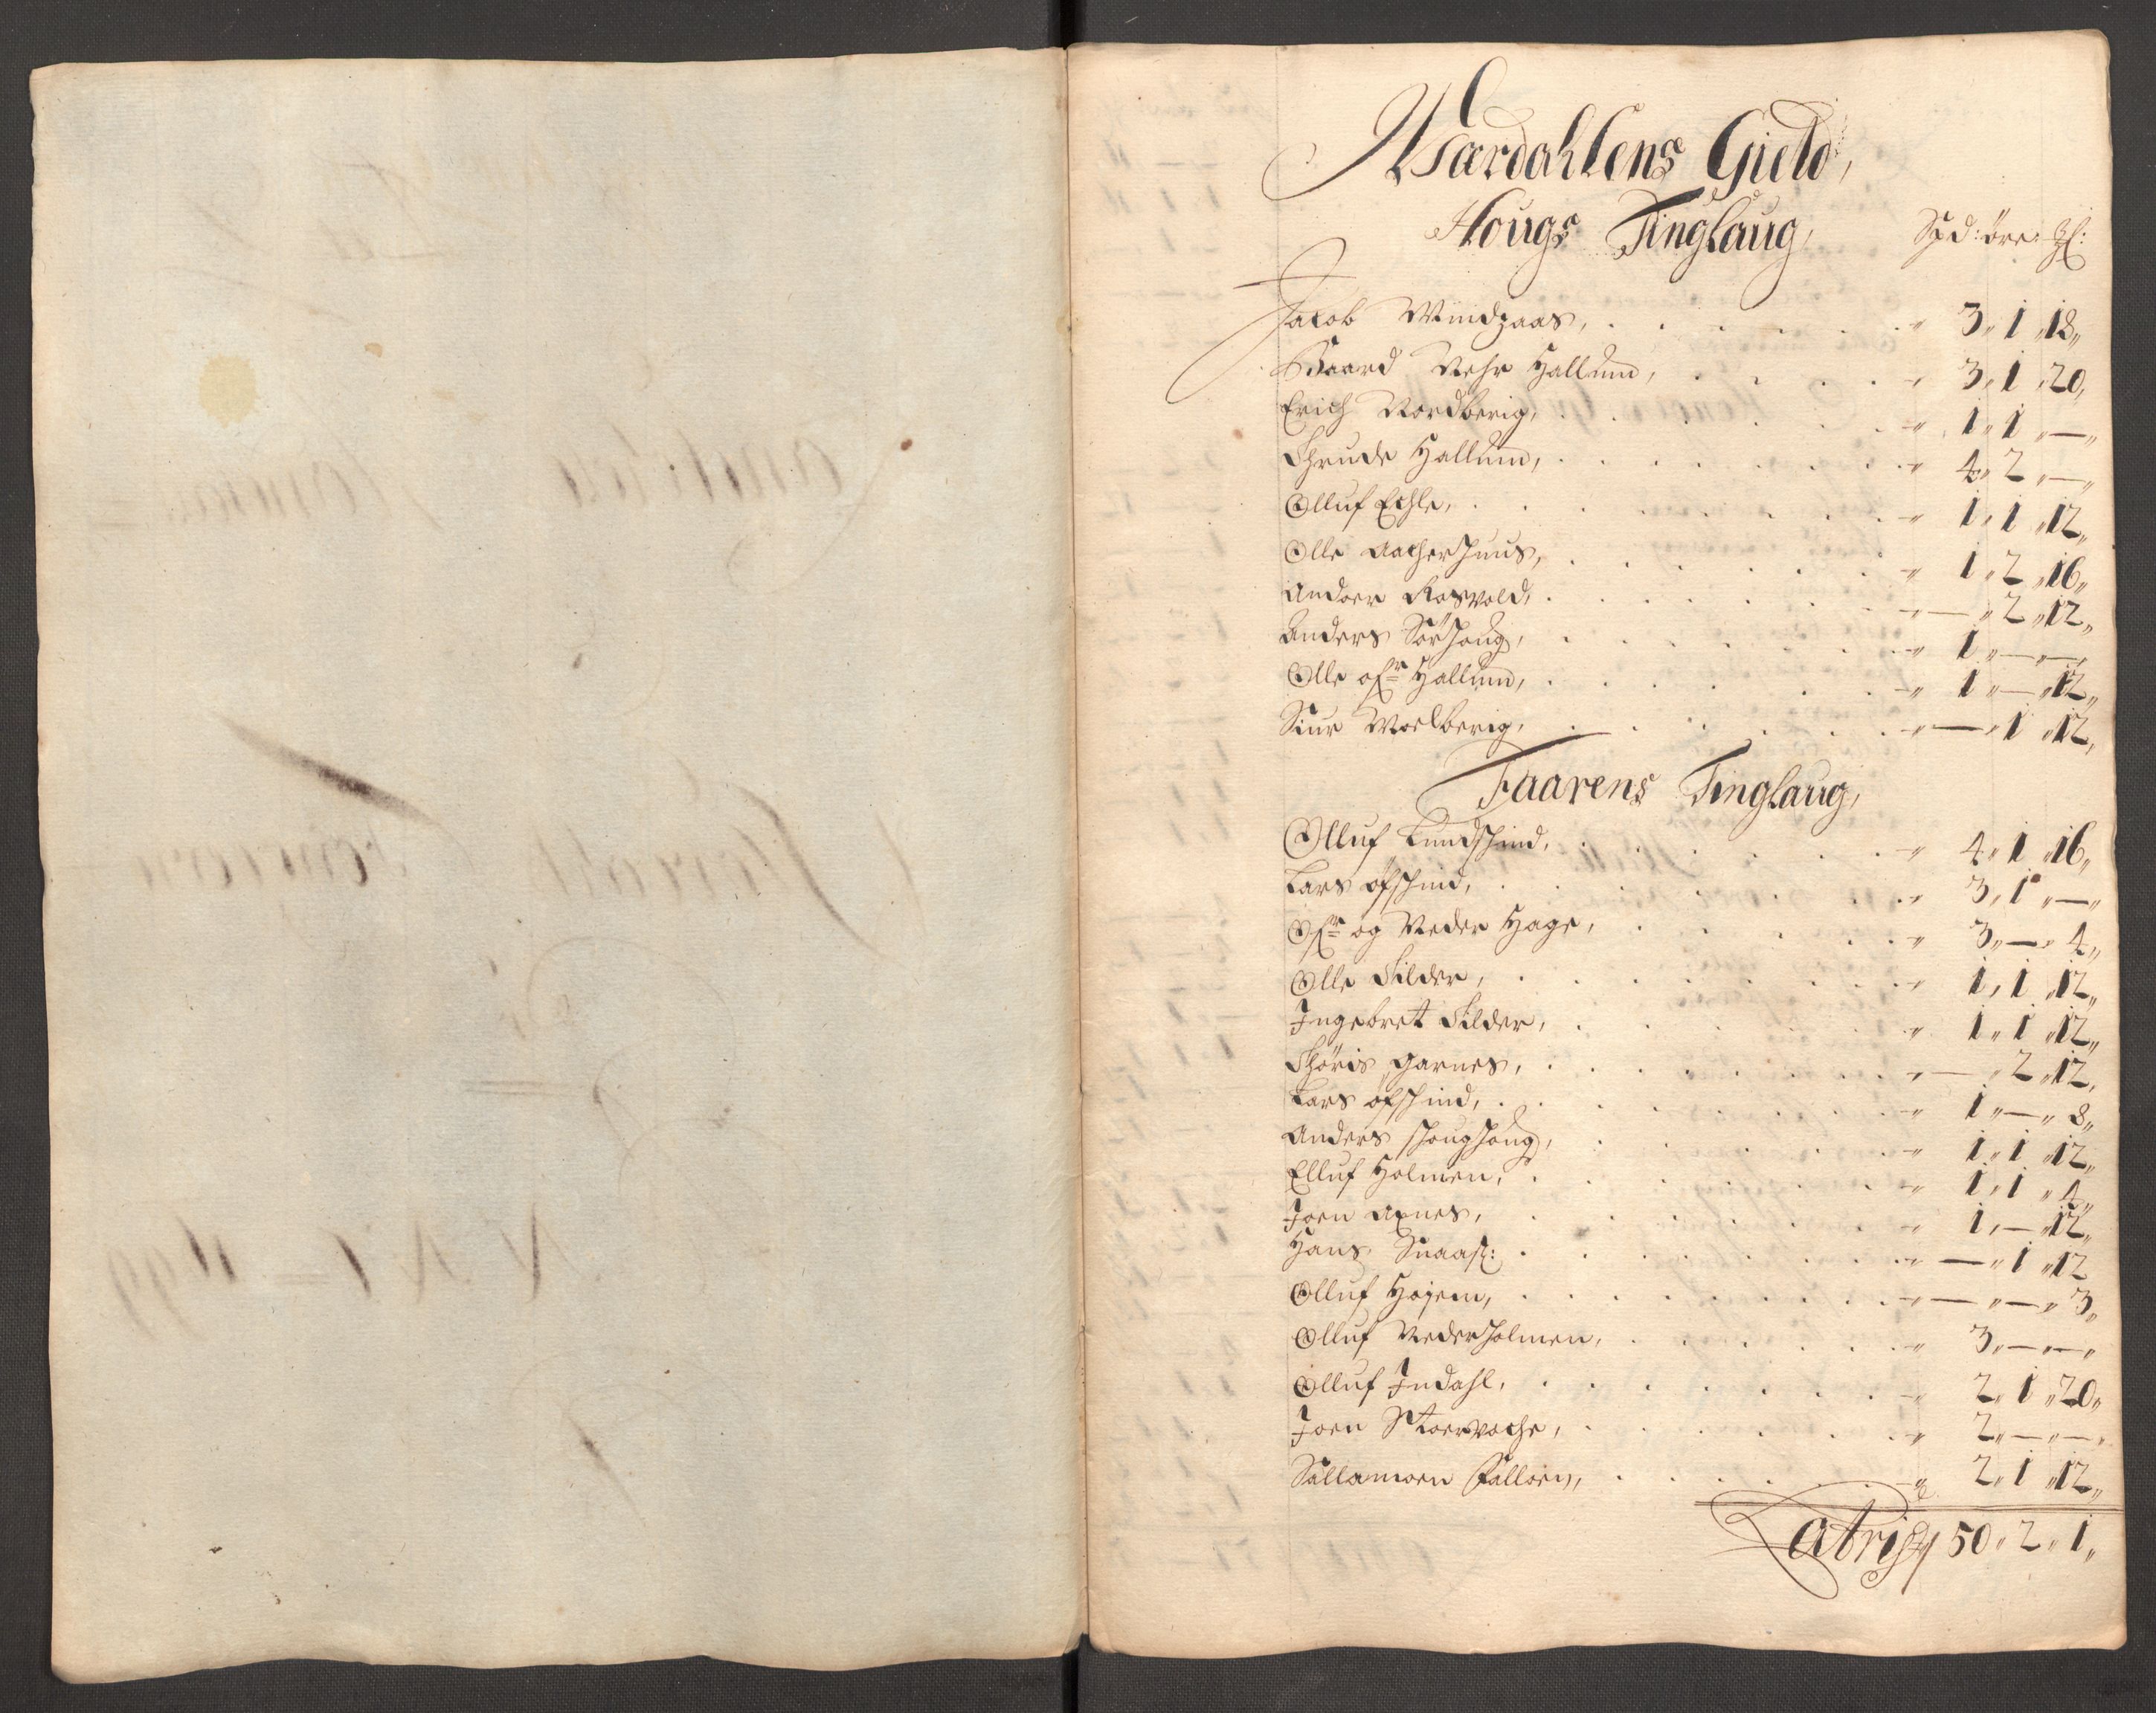 Wærdahlens Gield,
Hougs Tinglaug,
Spd: öre: gl:
Jacob Windzaas, 3 „ 1 „ 18 „
Baard Nehr Hallum, 3 „ 1 „ 20 „
Erich Nordberig, 1 „ 1 „ — „
Schrude Hallum, 4 „ 2 „ — „
Olluf Echle, 1 „ 1 „ 12 „
Olle Aacherhuus, 1 „ 2 „ 16 „
Andær Rosvold, — „ 2 „ 12 „
Anders Sörhoug, 1 „ — „ — „
Olle ofr Hallum, 1 „ — „ 12 „
Siur Woelberig, — „ 1 „ 12 „
Faarens Tinglaug,
Olluf Lundschind, 4 „ 1 „ 16 „
Lars öfschind, 3 „ 1 „ — „
Ofr og Neder Hage, 3 „ — „ 4 „
Olle Kilder, 1 „ 1 „ 12 „
Ingebret Kilder, 1 „ 1 „ 12 „
Thöris Garnes, — „ 2 „ 12 „
Lars öfschind, 1 „ — „ 8 „
Anders Houghoug, 1 „ 1 „ 12 „
Elluf Holmen, 1 „ 1 „ 4 „
Joen Axnes, 1 „ — „ 12 „
Hans Snaas: — „ 1 „ 12
Olluf Hojem, — „ — „ 3 „
Olluf Nederholmen, 3 „ — „ — „
Olluf Indahl, 2 „ 1 „ 20 „
Joen Stoervoche, 2 „ — „ — „
Sallamoen Falloen, 2 „ 1 „ 12 „
Latris 50 „ 2 „ 1 „